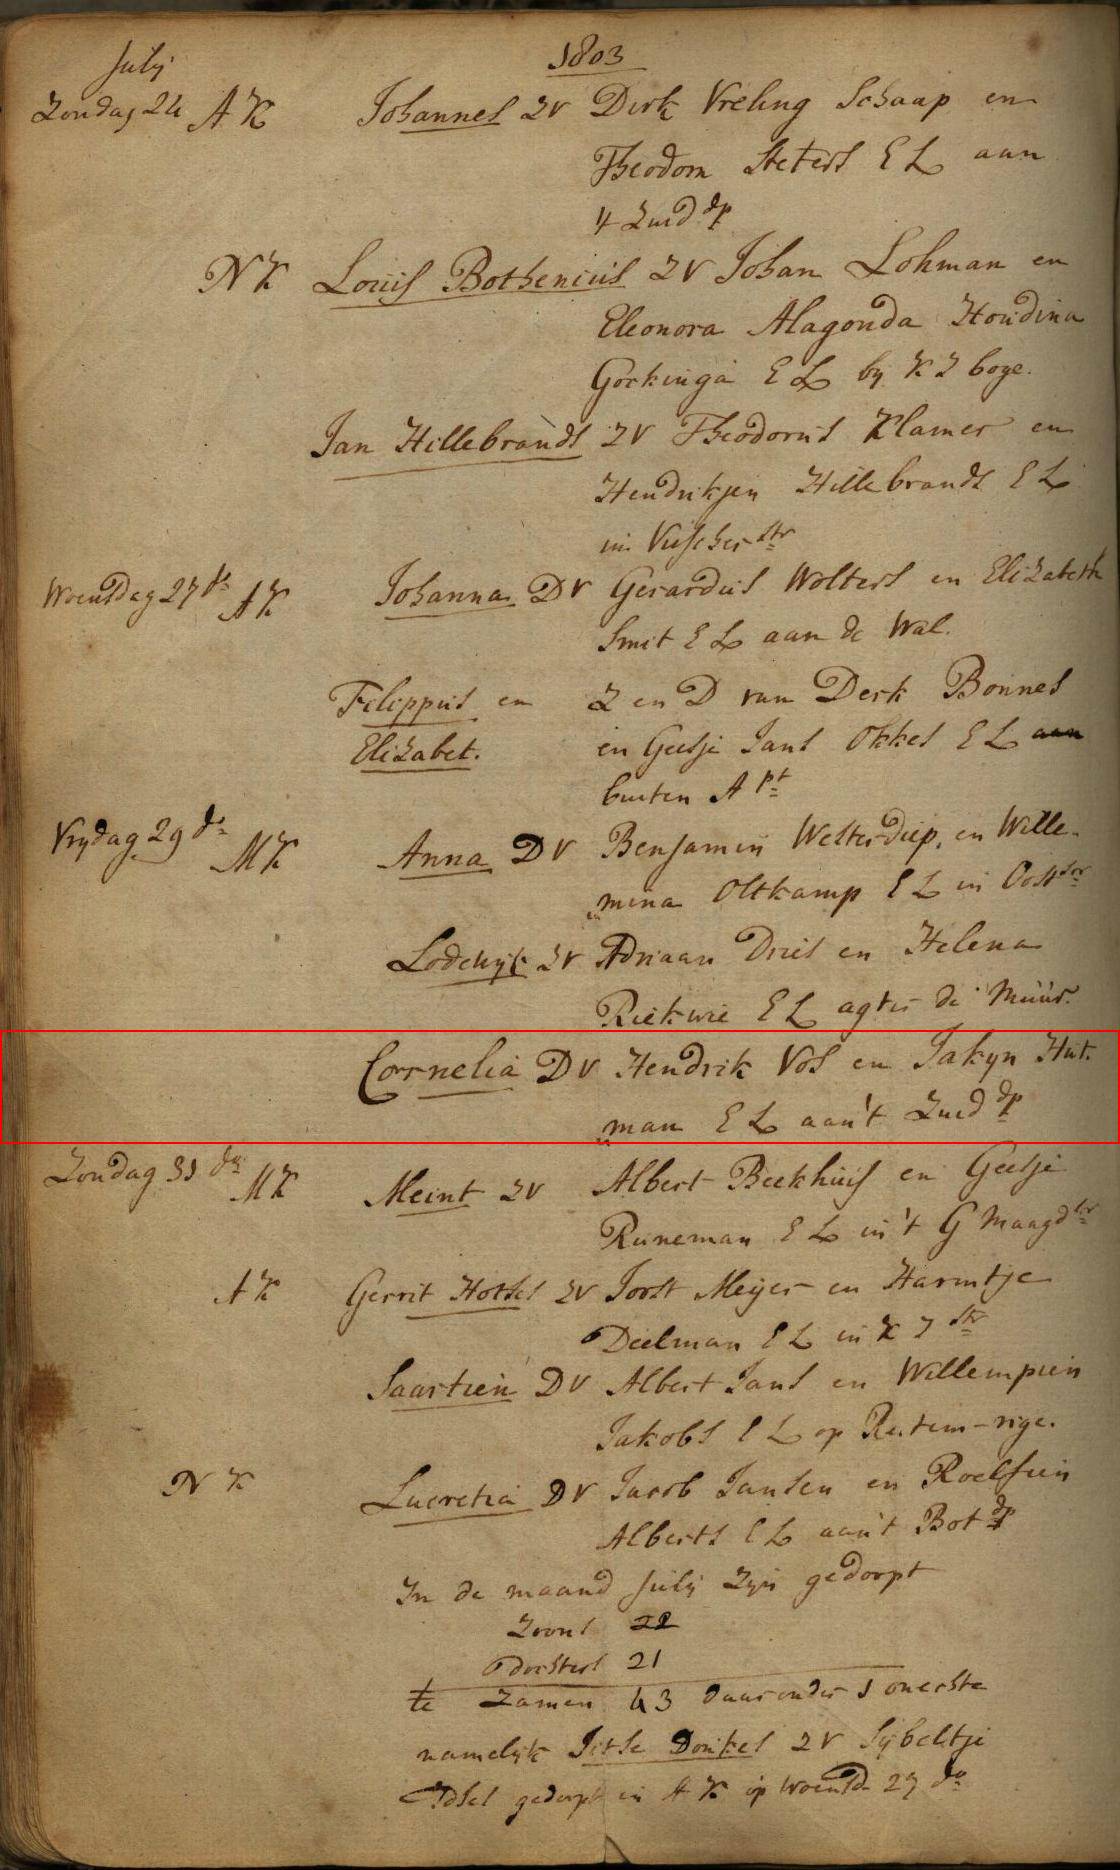 July 1803
Zondag 24 A K Johannes ZV Derk Vreling Schaap en
Theodora Steters E L aan
't Zuid dp
N K Louis Bothenius ZV Johan Lohman en
Eleonora Alagonda Houdina
Gockinga E L by K Z boge.
Jan Hillebrands ZV Theodorus Klamer en
Hendrikjen Hillebrands E L
in Visscher str
Woensdag 27 do A K Johanna DV Gerardus Wolters en Elizabeth
Smit E L aan de Wal.
Filippus en Z en D van Derk Bonnes
Elizabet. en Geesje Jans Okkes E L aan
buiten A pt
Vrydag 29 do M K Anna DV Benjamin Westerdiep, en Wille-
mina Oltkamp E L in Oost str
Lodewyk ZV Adriaan Dries en Helena
Riekwie E L agter de Muur.
Cornelia DV Hendrik Vos en Jakyn Hut-
man E L aan't Zuid dp
Zondag 31 do M K Meint ZV Albert Beekhuis en Geesje
Runeman E L in 't G Maagd str
A K Gerrit Hotses ZV Jorst Meijer en Harmtje
Deelman E L in K 7 str
Saartien DV Albert Jans en Willempien
Jakobs E L op -rige.
N K Lucretia DV Jacob Jansen en Roelfien
Alberts E L aan't Bot dp
In de maand July Zyn gedoopt
Zoons 22
Dochters 21
te Zamen 43 daaronder 1 onechte
namelyk Jetse Donkes ZV Sybeltje
Edses gedoopt in A K op Woensd 27 do